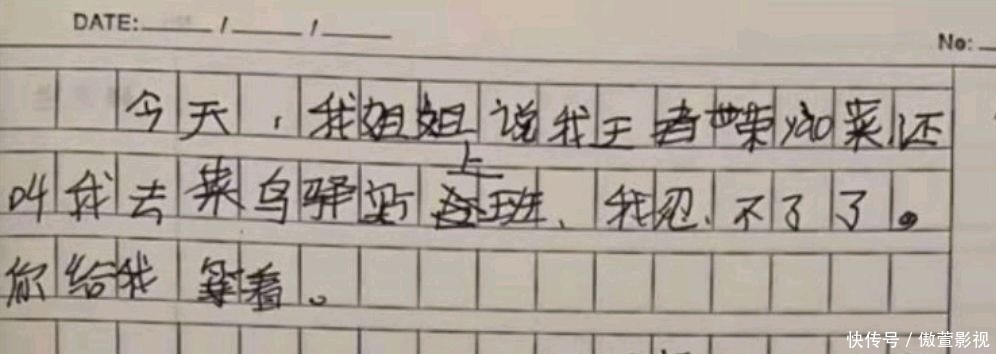 DATE:____/____/____
No:
今天,我姐姐说我王者荣耀菜,还
叫我去菜鸟驿站上班、我忍、不了了。
你给我等着。
快传号/傲萱影视